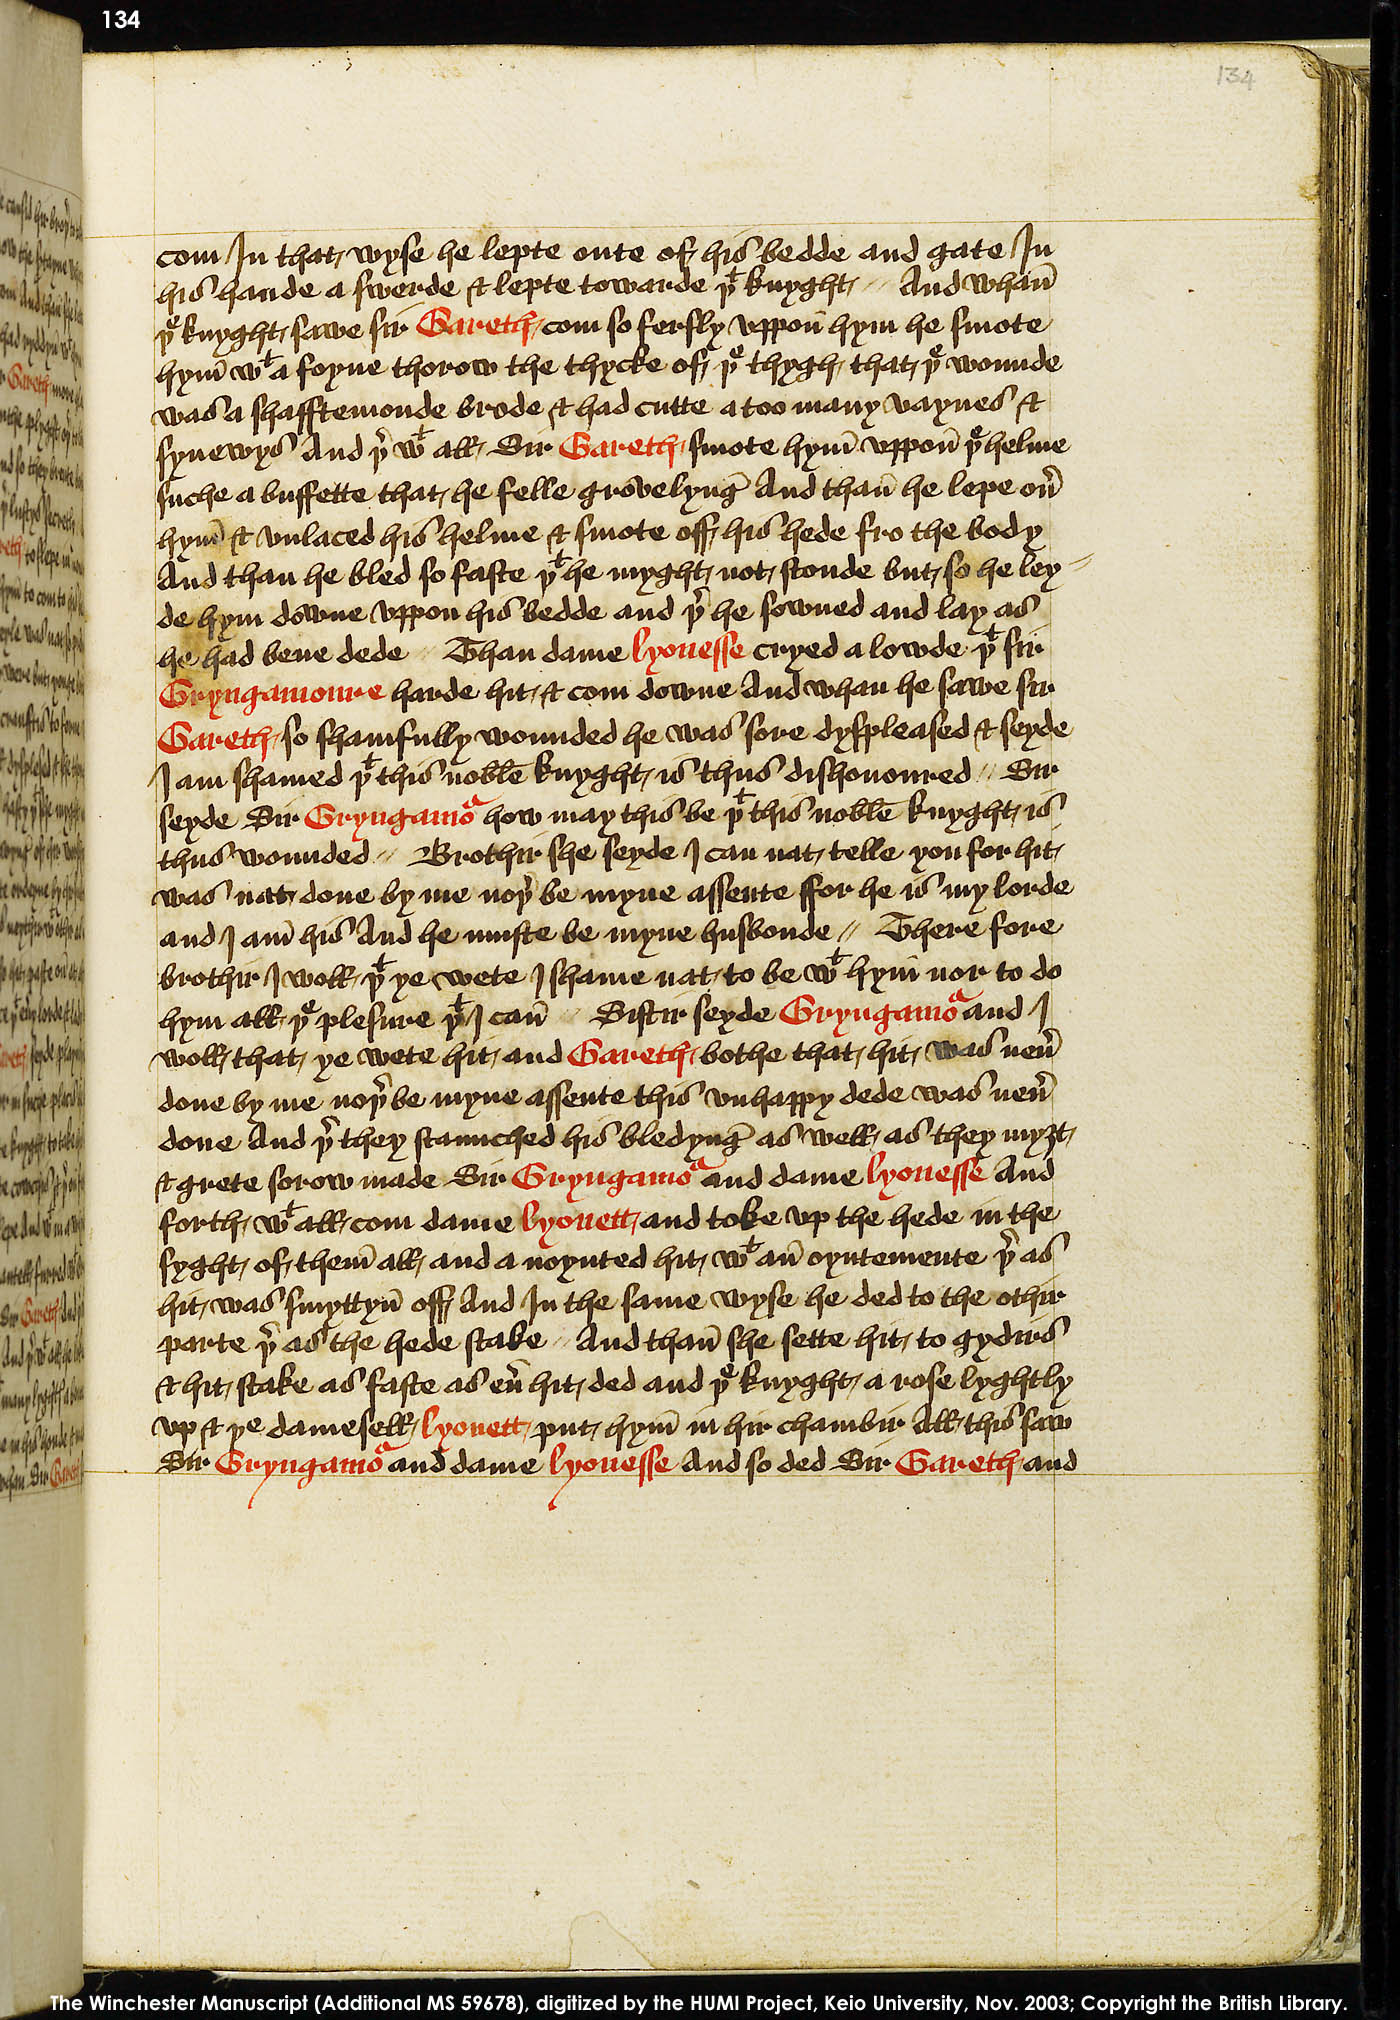 134
134
com In that wyse he lepte oute of his bedde and gate In
his hande a swerde & lepte towarde þt knyght // And whan̄
þe knyght sawe sir Gareth com so fersly vppon̄ hym he smote
hym̄ wt a foyne thorow the thycke of þe thygh that þe wounde
was a shafftemonde brode & had cutte a too many vaynes &
synewys And þr wt all Sir Gareth smote hym̄ vppon̄ þe helme
suche a buffette that he felle grovelynḡ And than̄ he lepe ou̾
hym̄ & vnlaced his helme & smote off his hede fro the body
And than he bled so faste þt he myght not stonde but so he ley //
de hym downe vppon his bedde and þr he sowned and lay as
he had bene dede // Than dame lyonesse cryed a lowde þt sir
Gryngamoure harde hit & com downe And whan he sawe sir
Gareth so shamfully wounded he was sore dyspleased & seyde
I am shamed þt this noble knyght is thus dishonoured // Sir
seyde Sir Gryngamoa how may this be þt this noble knyght is
thus wounded // Brothir she seyde I can nat telle you for hit
was nat done by me noþ̾ be myne assente ffor he is my lorde
and I am̄ his And he muste be myne husbonde // There fore
brothir I woll þt ye wete I shame nat to be wt hym̄ nor to do
hym all þe plesure þt I can̄ // Sistir seyde Gryngamoa and I
woll that ye wete hit and Gareth bothe that hit was neu̾
done by me noþ̾ be myne assente this vnhappy dede was neu̾
done And þr they staunched his bledynḡ as well as they myȝt
& grete sorow made Sir Gryngamoa and dame lyonesse And
forth wt all com dame lyonett and toke vp the hede in the
syght of them̄ all and a noynted hit wt an̄ oyntemente þr as
hit was smyttyn̄ off And In the same wyse he ded to the othir
parte þr as the hede stake // And than̄ she sette hit to gydirs
& hit stake as faste as eu̾ hit ded and þe knyght a rose lyghtly
vp & þe damesell lyonett put hym̄ in hir chambir All this saw
Sir Gryngamoa and dame lyonesse And so ded Sir Gareth and
The Winchester Manuscript (Additional MS 59678), digitized by the HUMI Project, Keio University, Nov. 2003; Copyright the British Library.